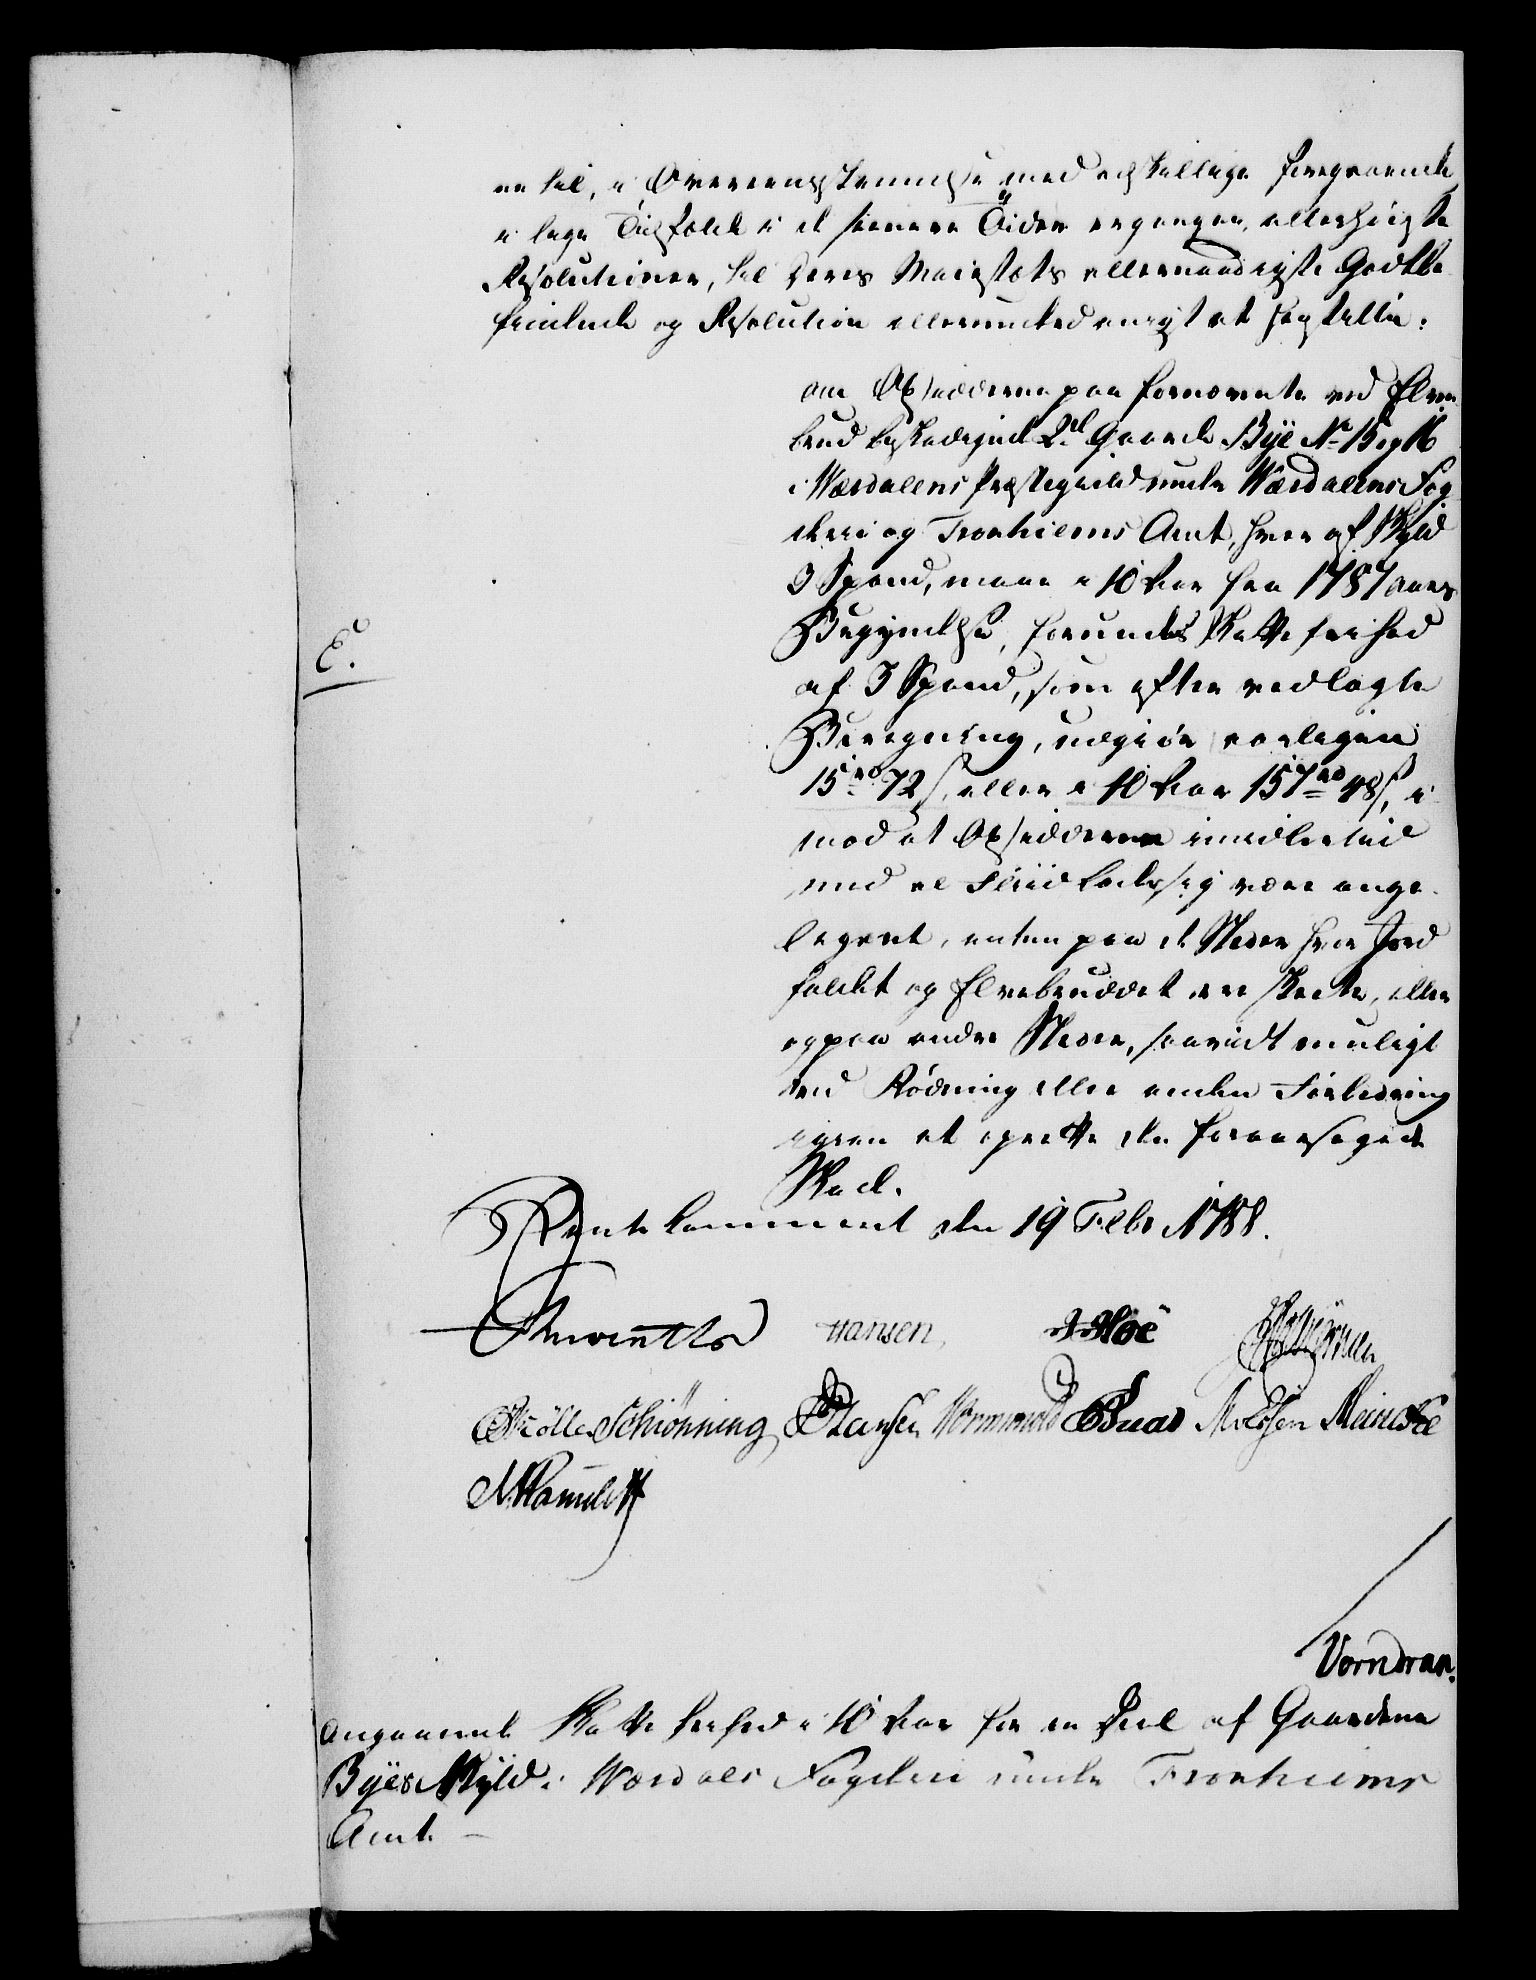 re til, i Overeensstemmelse med adskillige foregaaende
i lige Tilfælde i de seenere Tider ergangne, allerhøieste
Resolutioner, til Deres Maiestæts allernaadigste Godtbe
findende og Resolution allerunderdanigst at indstille:
om Opsidderne paa fornævnte ved Elve
brud beskadigede 2de Gaarde Bÿe No 15 og 16
i Wærdalens Præstegield under Wærdalens Fog
derie og Tronhiems Amt, hver af Skyld
3 Spand, maae i 10 Aar fra 1787 aars
Begyndelse, forundes Skattefrihed
E.
af 3 Spand, som efter vedlagte
Beregning, udgiør aarligen
15 rd 72 s, eller i 10 Aar 157 rd 48 s, i
mod at Opsidderne imidlertid
med al Fliid lader sig være ange-
legent, enten paa de Steder hvor Jord
faldet og Elvebruddet ere skeete, eller
og paa andre Steder, saavidt muligt
ved Rødning eller anden Forbedring
igien at oprette den foraarsagede
Skade.
Rentekammeret den 19 Febr 1788.
Reventlow Hansen,
Schiønning Hansen Wormskiold Meincke
Vorndran.
Angaaende Skattefrihed i 10 Aar for en Deel af Gaardene
Bÿes Skÿld i Wærdals Fogderie under Tronhiems
Amt. –